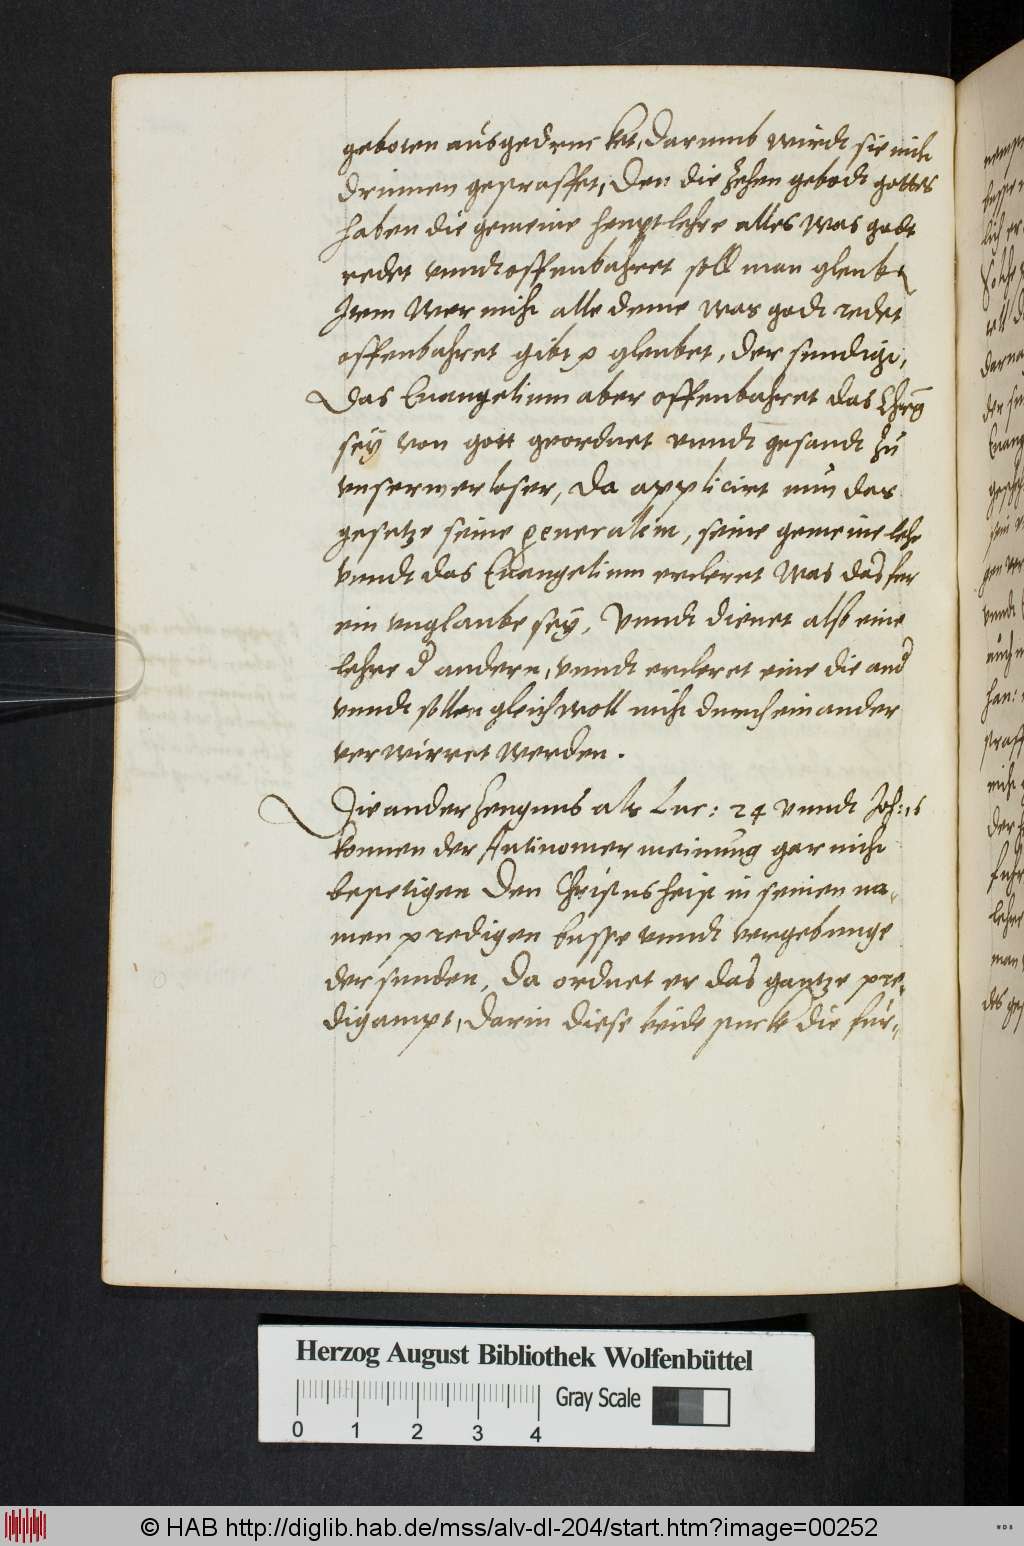 geboten ausgedruckt, darumb wirdt sie nicht
drinnen gestraffet, Den die Zehen gebodt gottes
haben die gemeine heuptlehre alles was godt
redet vnndt offenbahret soll man gleuben
Item wer nicht alle deme was godt redet
offenbahret gibt p gleubet, der sundigt,
Das Euangelium aber offenbahret das Chrus
sey von gott geordnet vnndt gesandt zu
vnserm erloser, Da applicirt nun das
gesetze seine generalem, seine gemeine lehr
vnndt das Euangelium ercleret was das fur
ein vnglaube sey, Vnndt dienet also eine
lehre d andern, vnndt ercleret eine die and
vnndt sollen gleichwoll nicht durcheinander
verwirret werden.
Die ander Zeugnus als Luc: 24 vnndt Joh: 16
konnen der Antinomer meinung gar nicht
bestetigen Den Christus heist in seinen na-
men predigen busse vnndt vergebunge
der sunden, Da ordnet er das gantze pre-
digampt, darin diese beide stucke die fur-
Herzog August Bibliothek Wolfenbüttel
Gray Scale
0 1 2 3 4
© HAB http://diglib.hab.de/mss/alv-dl-204/start.htm?image=00252